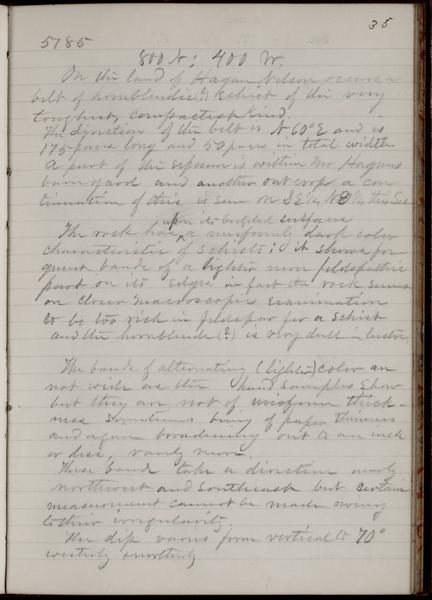 35
5185
800 N; 400 W.
On the land of Hagan Nelson occurs a
belt of hornblendic(?) schist of the very
toughest, compactest kind.
The direction of the belt is N 60° E and is
175 paces long and 50 paces in total width
A part of the exposure is within Mr Hagans
barnyard and another outcrop a con
tinuation of this is seen on SE¼ NW¼ this Sec
upon its bulged surfaces
The rock has a uniformly dark color
characteristic of schists; it shows fre
quent bands of a lighter more feldspathic
part on its edges in fact the rock seems
on closer macroscopic examination
to be too rich in feldspar for a schist
and the hornblende (?) is very dull in lustre.
The bands of alternating (lighter) color are
not wide as the hand samples show
but they are not of uniform thick-
ness sometimes being of paper thinness
and again broadening out to an inch
or disc, rarely more.
These bands take a direction nearly
northwest and southeast but certain
measurement cannot be made owing
to their irregularity.
The dip varies from vertical to 70°
westerly northerly